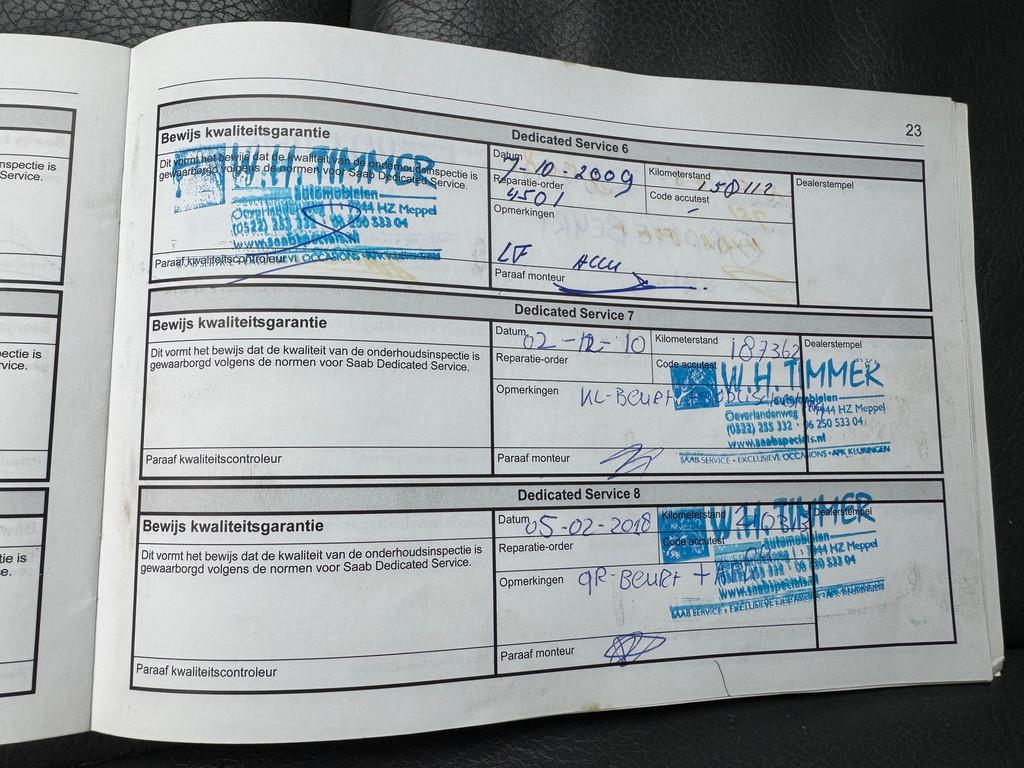 nspectie is
Service.
ectie is
vice.
tie is
e.
23
Dedicated Service 6
Bewijs kwaliteitsgarantie
Dit vormt het bewijs dat de kwaliteit van de onderhoudsinspectie is
gewaarborgd volgens de normen voor Saab Dedicated Service.
W.H. TIMMER
Automobielen
7944 HZ Meppel
(0522) 255 332 06 250 533 04
www.saabspecials.nl
SAAB SERVICE • EXCLUSIEVE OCCASIONS • APK KEURINGEN
Paraaf kwaliteitscontroleur
Datum 7-10-2009
Kilometerstand 158112
Reparatie-order 4501
Code accutest -
Opmerkingen
LF Accu
Paraaf monteur
Dealerstempel
Dedicated Service 7
Bewijs kwaliteitsgarantie
Dit vormt het bewijs dat de kwaliteit van de onderhoudsinspectie is
gewaarborgd volgens de normen voor Saab Dedicated Service.
Paraaf kwaliteitscontroleur
Datum 02-12-10
Kilometerstand 187362
Reparatie-order
Code accutest
Opmerkingen KL-Beurt +
Paraaf monteur
Dealerstempel
W.H. TIMMER
automobielen
Oeverlandenweg 7944 HZ Meppel
(0522) 255 332 • 06 250 533 04
www.saabspecials.nl
SAAB SERVICE • EXCLUSIEVE OCCASIONS • APK KEURINGEN
Dedicated Service 8
Bewijs kwaliteitsgarantie
Dit vormt het bewijs dat de kwaliteit van de onderhoudsinspectie is
gewaarborgd volgens de normen voor Saab Dedicated Service.
Paraaf kwaliteitscontroleur
Datum 05-02-2018
Kilometerstand
Reparatie-order
Code accutest
Opmerkingen GR-Beurt +
Paraaf monteur
Dealerstempel
W.H. TIMMER
automobielen
7944 HZ Meppel
(0522) 255 332 06 250 533 04
www.saabspecials.nl
SAAB SERVICE • EXCLUSIEVE OCCASIONS • APK KEURINGEN